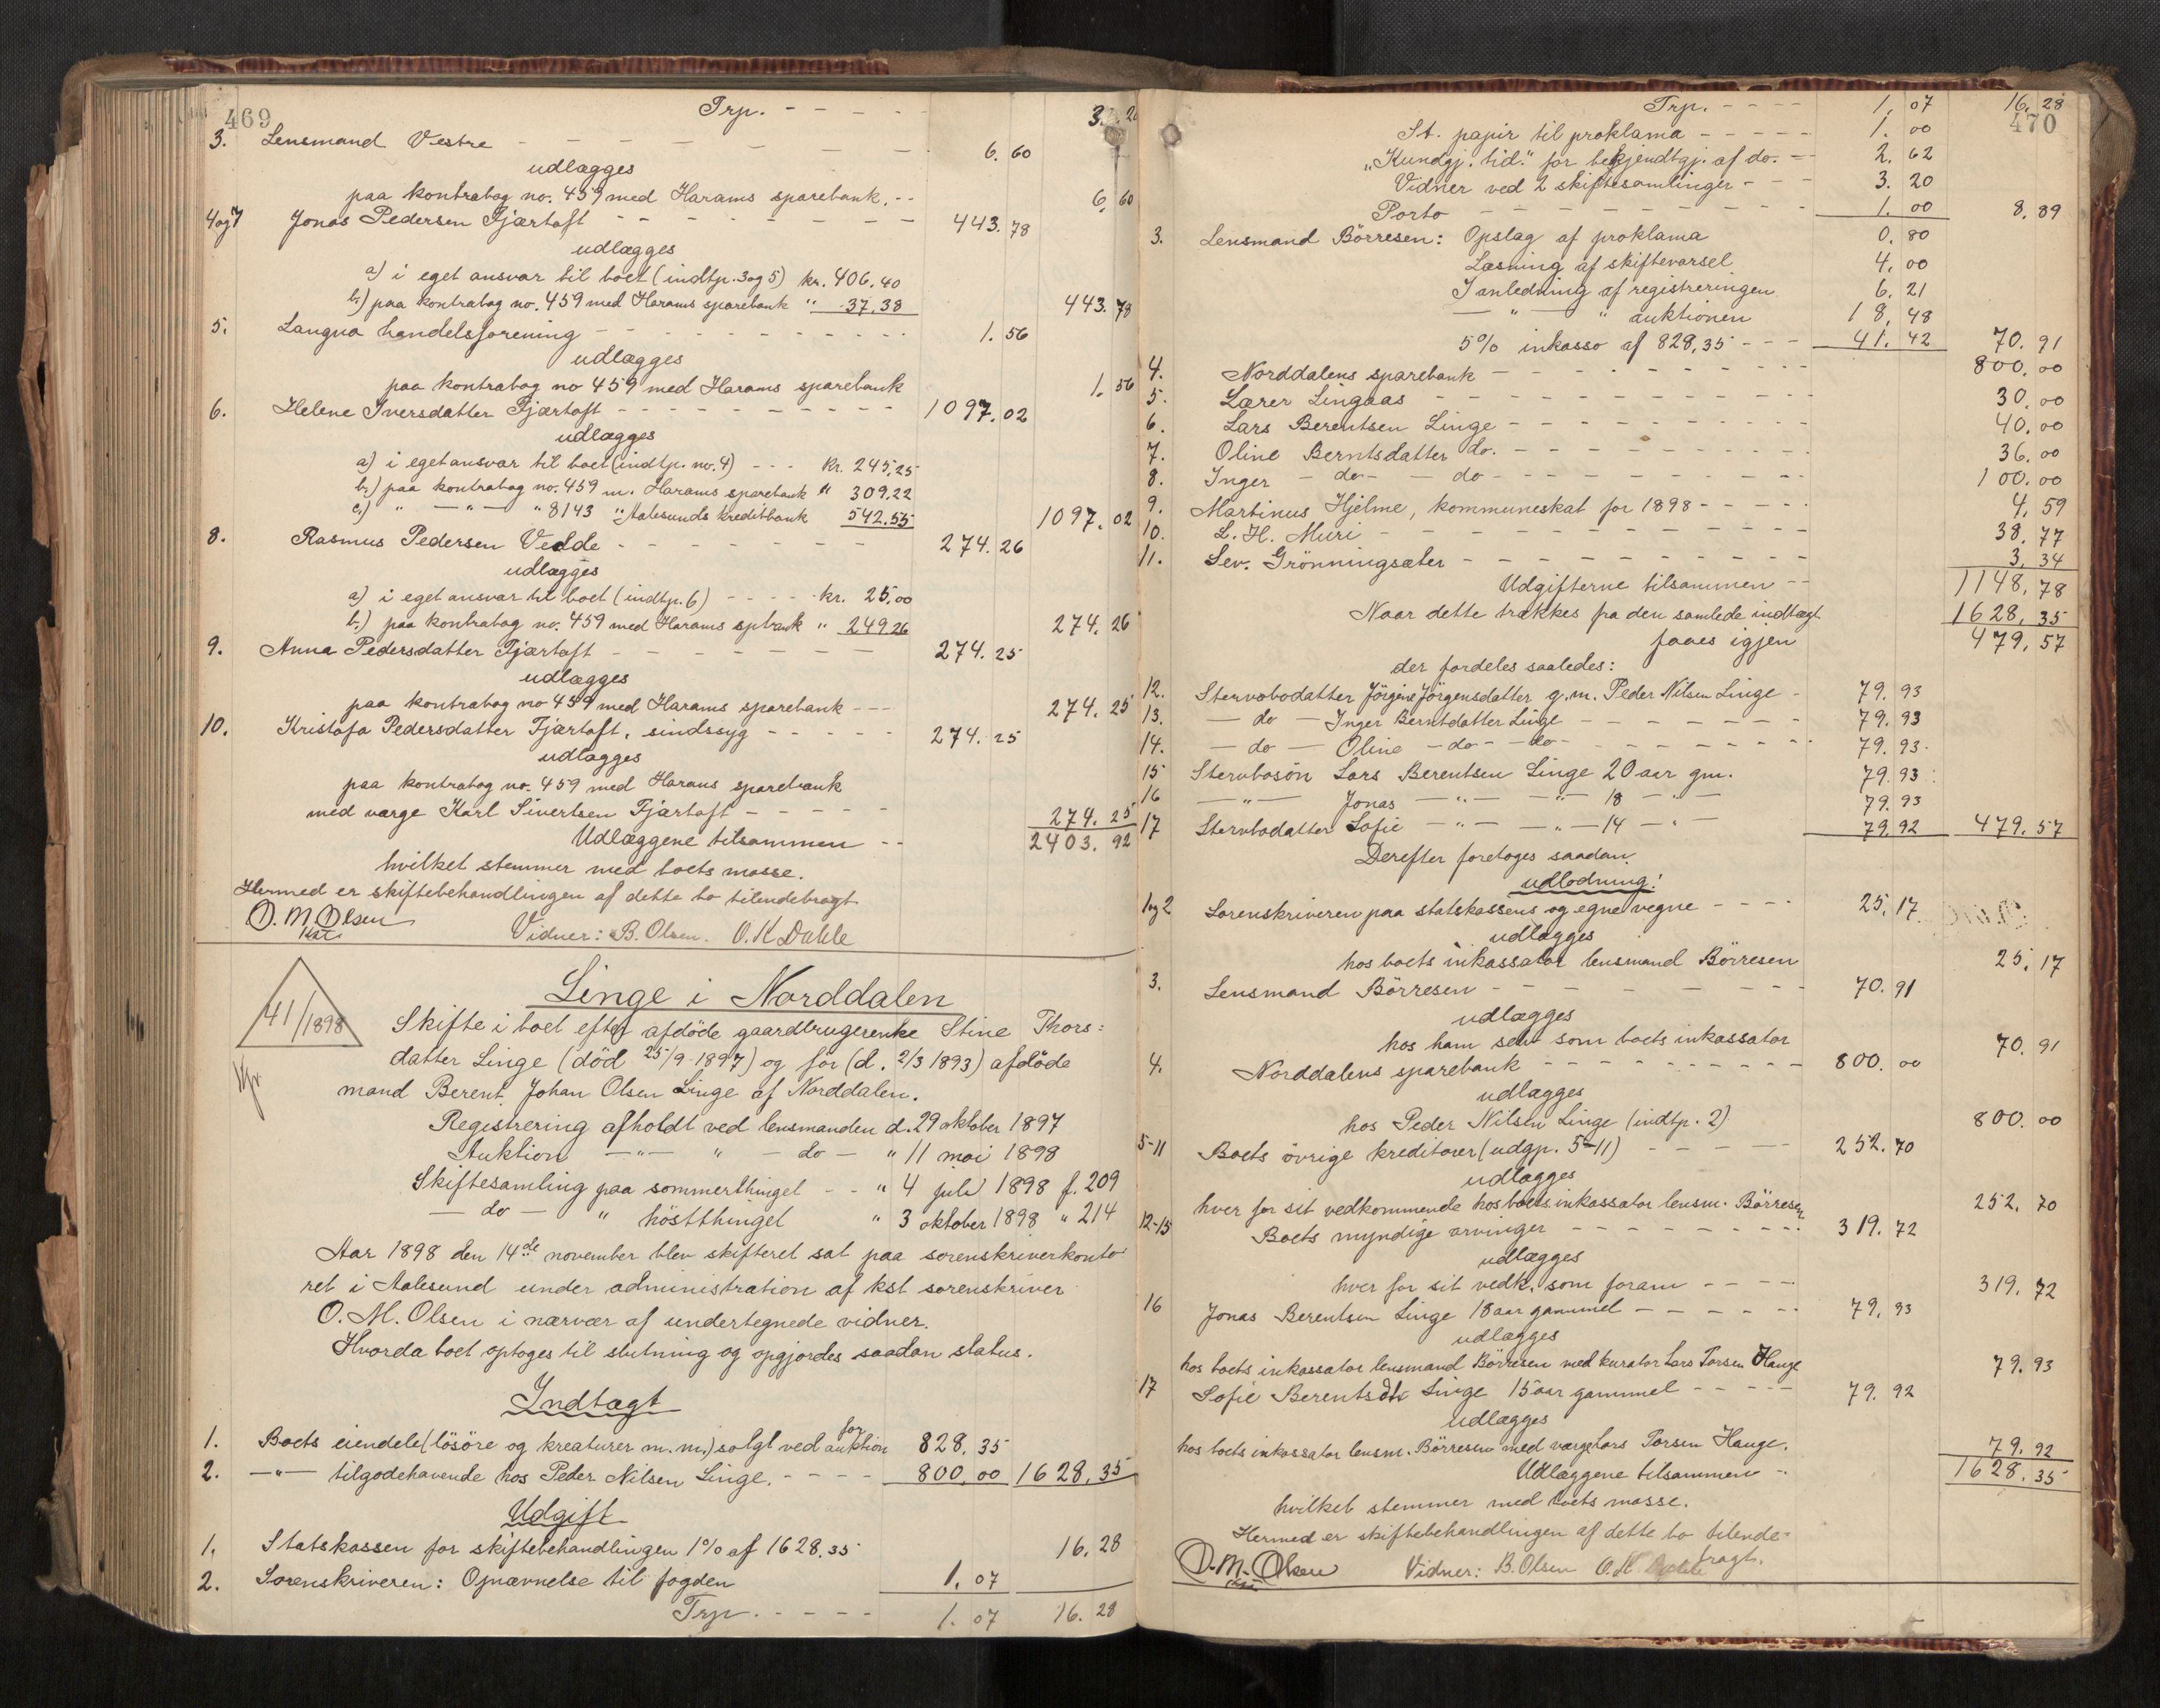 469
Trp. - - - - 3. 2
3. Lensmand Vestre - - - - - - 6. 60
udlægges
paa kontrabog no. 459 med Harams sparebank. - - 6. 60
4 og 7 Jonas Pedersen Fjærtoft - - - - - - 443. 78
udlægges
a) i eget ansvar til boet (indtp. 3 og 5) kr. 406.40
b.) paa kontrabog no. 459 med Harams sparebank " 37.38 443. 78
5. Langva handelsforening - - - - - - 1. 56
udlægges
paa kontrabog no 459 med Harams sparebank 1. 56
6. Helene Iversdatter Fjærtoft - - - - - - 1097. 02
udlægges
a) i eget ansvar til boet (indtp. no. 4) - - - kr. 245,25
b.) paa kontrabog no. 459 m. Harams sparebank " 309.22
c.) " — " — " 8143 " Aalesunds kreditbank 542.55 1097. 02
8. Rasmus Pedersen Vedde - - - - - - 274. 26
udlægges
a) i eget ansvar til boet (indtp. 6) - - - - kr. 25,00
b.) paa kontrabog no. 459 med Harams spbank " 249.26 274. 26
9. Anna Pedersdatter Fjærtoft - - - - - - 274. 25
udlægges
paa kontrabog no 459 med Harams sparebank - - - 274. 25
10. Kristofa Pedersdatter Fjærtoft, sindssyg - - - - - 274. 25
udlægges
paa kontrabog no. 459 med Harams sparebank
med værge Karl Sivertsen Fjærtoft - - - - 274. 25
Udlæggene tilsammen - - 2403. 92
hvilket stemmer med boets masse.
Hermed er skiftebehandlingen af dette bo tilendebragt
O. M. Olsen
kst.
Vidner: B. Olsen. O. K Dahle
Linge i Norddalen
41/1898
Skifte i boet efter afdöde gaardbrugerenke Stine Thors=
datter Linge (död 25/9 1897) og för (d. 2/3 1893) afdöde
mand Berent Johan Olsen Linge af Norddalen.
Registrering afholdt ved lensmanden d. 29 oktober 1897
Auktion — " — " — do — " 11 mai 1898
Skiftesamling paa sommerthinget - - " 4 juli 1898 f. 209
— do — " höstthinget " 3 oktober 1898 " 214
Aar 1898 den 14de november blev skifteret sat paa sorenskriverkonto=
ret i Aalesund under administration af kst sorenskriver
O. M. Olsen i nærvær af undertegnede vidner.
Hvorda boet optoges til slutning og opgjordes saadan status.
Indtægt
1. Boets eiendele (lösöre og kreaturer m. m.) solgt ved auktion for 828. 35
2. — " — tilgodehavende hos Peder Nilsen Linge. - - - - 800,00 1628,35
Udgift
1. Statskassen for skiftebehandlingen 1% af 1628.35 16. 28
2. Sorenskriveren: Opnævnelse til fogden 1. 07
Trp. - - - - - 1. 07 16. 28
470
Trp. - - - - 1. 07 16. 28
St. papir til proklama - - - - - 1. 00
"Kundgj. tid." for bekjendtgj. af do. - - 2. 62
Vidner ved 2 skiftesamlinger - - - 3. 20
Porto - - - - - - 1. 00 8. 89
3. Lensmand Börresen: Opslag af proklama 0. 80
Læsning af skiftevarsel 4. 00
I anledning af registreringen 6. 21
— " — " auktionen 18. 48
5% inkasso af 828,35 - - - 41. 42 70. 91
4. Norddalens sparebank - - - - - - 800. 00
5. Lærer Lingaas - - - - - - 30. 00
6. Lars Berentsen Linge - - - - - - 40. 00
7. Oline Berntsdatter do. - - - - - - 36. 00
8. Inger — do — — do - - - - - - 100. 00
9. Martinus Hjelme, kommuneskat for 1898 - - - - - 4. 59
10. L. H. Muri - - - - - - 38. 77
11. Sev. Grönningsæter - - - - - - 3. 34
Udgifterne tilsammen - - 1148. 78
Naar dette trækkes fra den samlede indtægt 1628. 35
faaes igjen 479. 57
der fordeles saaledes:
12. Stervbodatter Jörgine Jörgensdatter g. m. Peder Nilsen Linge - 79. 93
13. — do — Inger Berntdatter Linge - - - - - - 79. 93
14. — do — Oline — do — — do - - - - - - 79. 93
15 Stervbosön Lars Berentsen Linge 20 aar gm. 79. 93
16 — " — Jonas — " — — " — 18 — " — 79. 93
17 Stervbodatter Sofie — " — — " — 14 — " — 79. 92 479. 57
Derefter foretoges saadan
udlodning:
1 og 2 Sorenskriveren paa statskassens og egne vegne - - - - 25. 17
udlægges
hos boets inkassator lensmand Börresen 25. 17
3. Lensmand Börresen - - - - - - 70. 91
udlægges
hos ham selv som boets inkassator 70. 91
4. Norddalens sparebank - - - - - - 800. 00
udlægges
hos Peder Nilsen Linge (indtp. 2) 800. 00
5-11 Boets övrige kreditorer (udgp. 5-11) - - - - 252. 70
udlægges
hver for sit vedkommende hos boets inkassator lensm. Börresen 252. 70
12-15 Boets myndige arvinger - - - - - - 319. 72
udlægges
hver for sit vedk. som foran - - - - 319. 72
16 Jonas Berentsen Linge 18 aar gammel - - - - - 79. 93
udlægges
hos boets inkassator lensmand Börresen med kurator Lars Torsen Hauge 79. 93
17 Sofie Berentsdtr Linge 15 aar gammel - - - - - 79. 92
udlægges
hos boets inkassator lensm. Börresen med værge Lars Torsen Hauge. 79. 92
Udlæggene tilsammen - 1628. 35
hvilket stemmer med boets masse.
Hermed er skiftebehandlingen af dette bo tilende=
bragt.
O. M. Olsen
kst
Vidner: B. Olsen O. K. Dahle